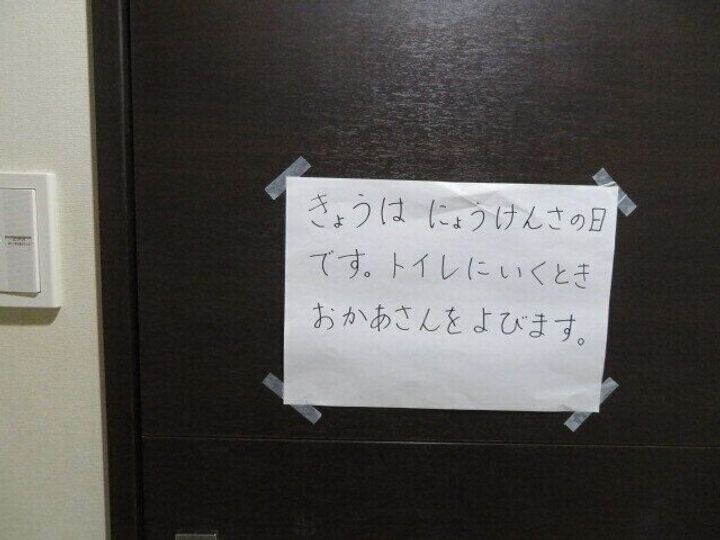 きょうは にょうけんさの日
です。トイレにいくとき
おかあさんをよびます。